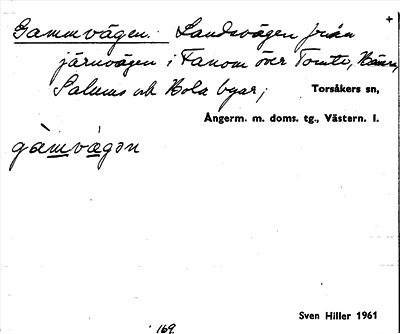 +
Gammvägen. Landsvägen från
järnvägen i Fanom över Tomte, Hämra,
Salums och Hola byar; Torsåkers sn,
Ångerm. m. doms. tg., Västern. l.
gàmvägən
Sven Hiller 1961
169.